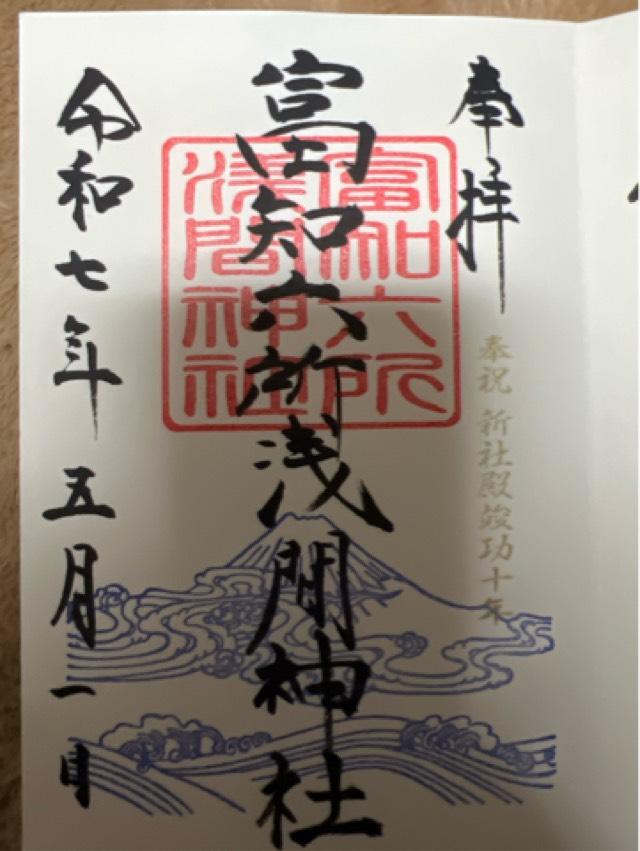 奉拝
奉祝 新社殿竣功十年
富知六所浅間神社
富知六所
浅間神社
令和七年 五月一日